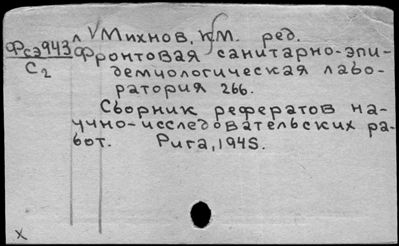 Михнов, К.М. ред.
Фсэ943 Фронтовая санитарно-эпи-
С2 демиологическая лабо-
ратория 266.
Сборник рефератов на-
учно-исследовательских ра-
бот. Рига, 1945.
х